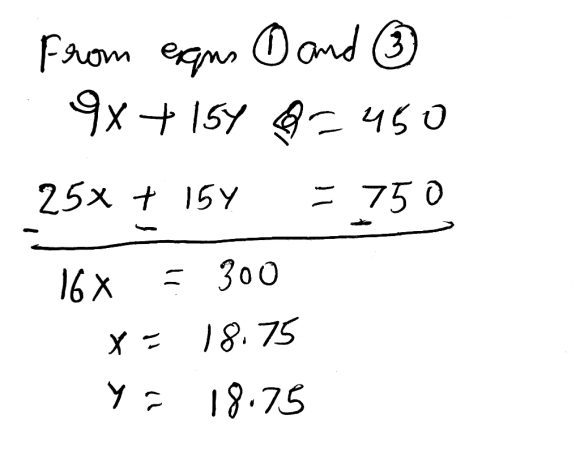 From eqns ① and ③
9x + 15y = 450
25x + 15y = 750
- - -
16x = 300
x = 18.75
y = 18.75